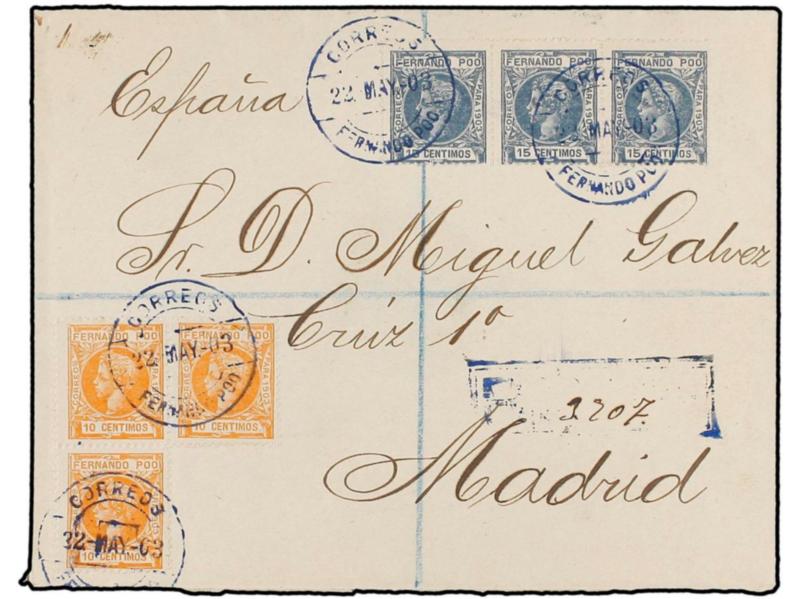 CORREOS
22 MAY-03
FERNANDO POO
FERNANDO POO
CORREOS
PARA 1903
15 CENTIMOS
FERNANDO POO
15 CENTIMOS
FERNANDO POO
15 CENTIMOS
CORREOS
MAY-03
FERNANDO POO
España
Sr. D. Miguel Galvez
Crúz 1º
3207
Madrid
CORREOS
22 MAY-03
FERNANDO POO
FERNANDO POO
CORREOS
10 CENTIMOS
FERNANDO POO
PARA 1903
10 CENTIMOS
FERNANDO POO
10 CENTIMOS
CORREOS
22-MAY-03